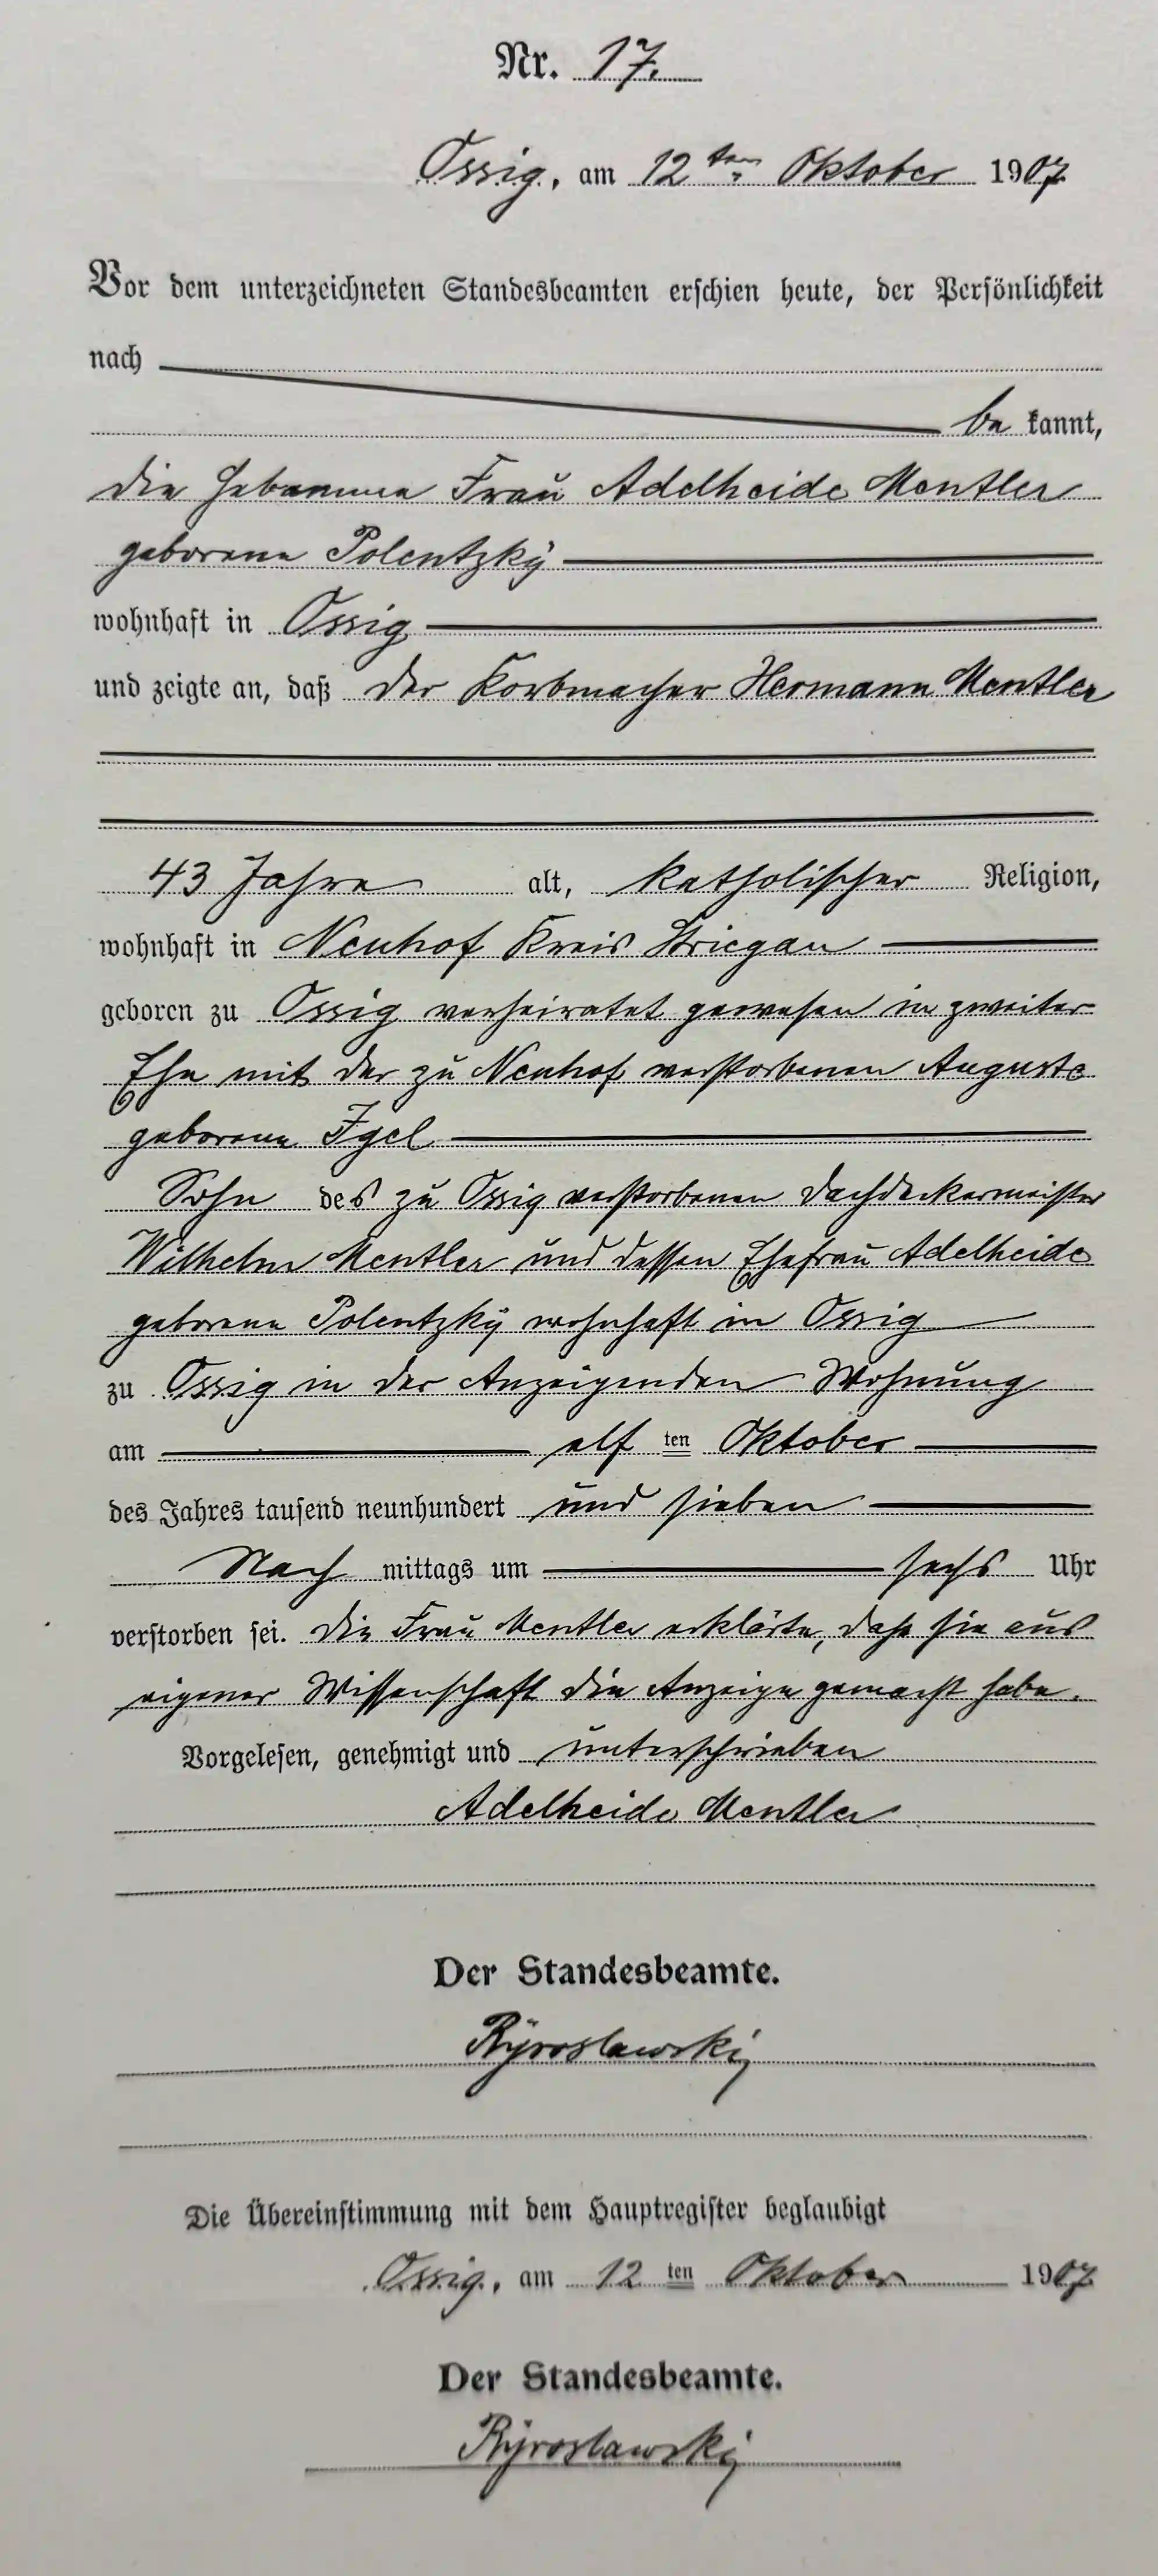 Nr. 17.
Ossig, am 12ten Oktober 1907
Vor dem unterzeichneten Standesbeamten erschien heute, der Persönlichkeit
nach
be kannt,
die Hebamme Frau Adelheide Mentler
geborene Polentzky
wohnhaft in Ossig
und zeigte an, daß der Korbmacher Hermann Mentler
43 Jahre alt, katholischer Religion,
wohnhaft in Neuhof Kreis Striegau
geboren zu Ossig verheiratet gewesen in zweiter
Ehe mit der zu Neuhof verstorbenen Auguste
geborene Igel
Sohn des zu Ossig verstorbenen Dachdeckermeister
Wilhelm Mentler und dessen Ehefrau Adelheide
geborene Polentzky wohnhaft in Ossig
zu Ossig in der Anzeigenden Wohnung
am elf ten Oktober
des Jahres tausend neunhundert und sieben
Nach mittags um sechs Uhr
verstorben sei. Die Frau Mentler erklärte, daß sie aus
eigener Wissenschaft die Anzeige gemacht habe.
Vorgelesen, genehmigt und unterschrieben
Adelheide Mentler
Der Standesbeamte.
Die Übereinstimmung mit dem Hauptregister beglaubigt
Ossig, am 12 ten Oktober 1907
Der Standesbeamte.